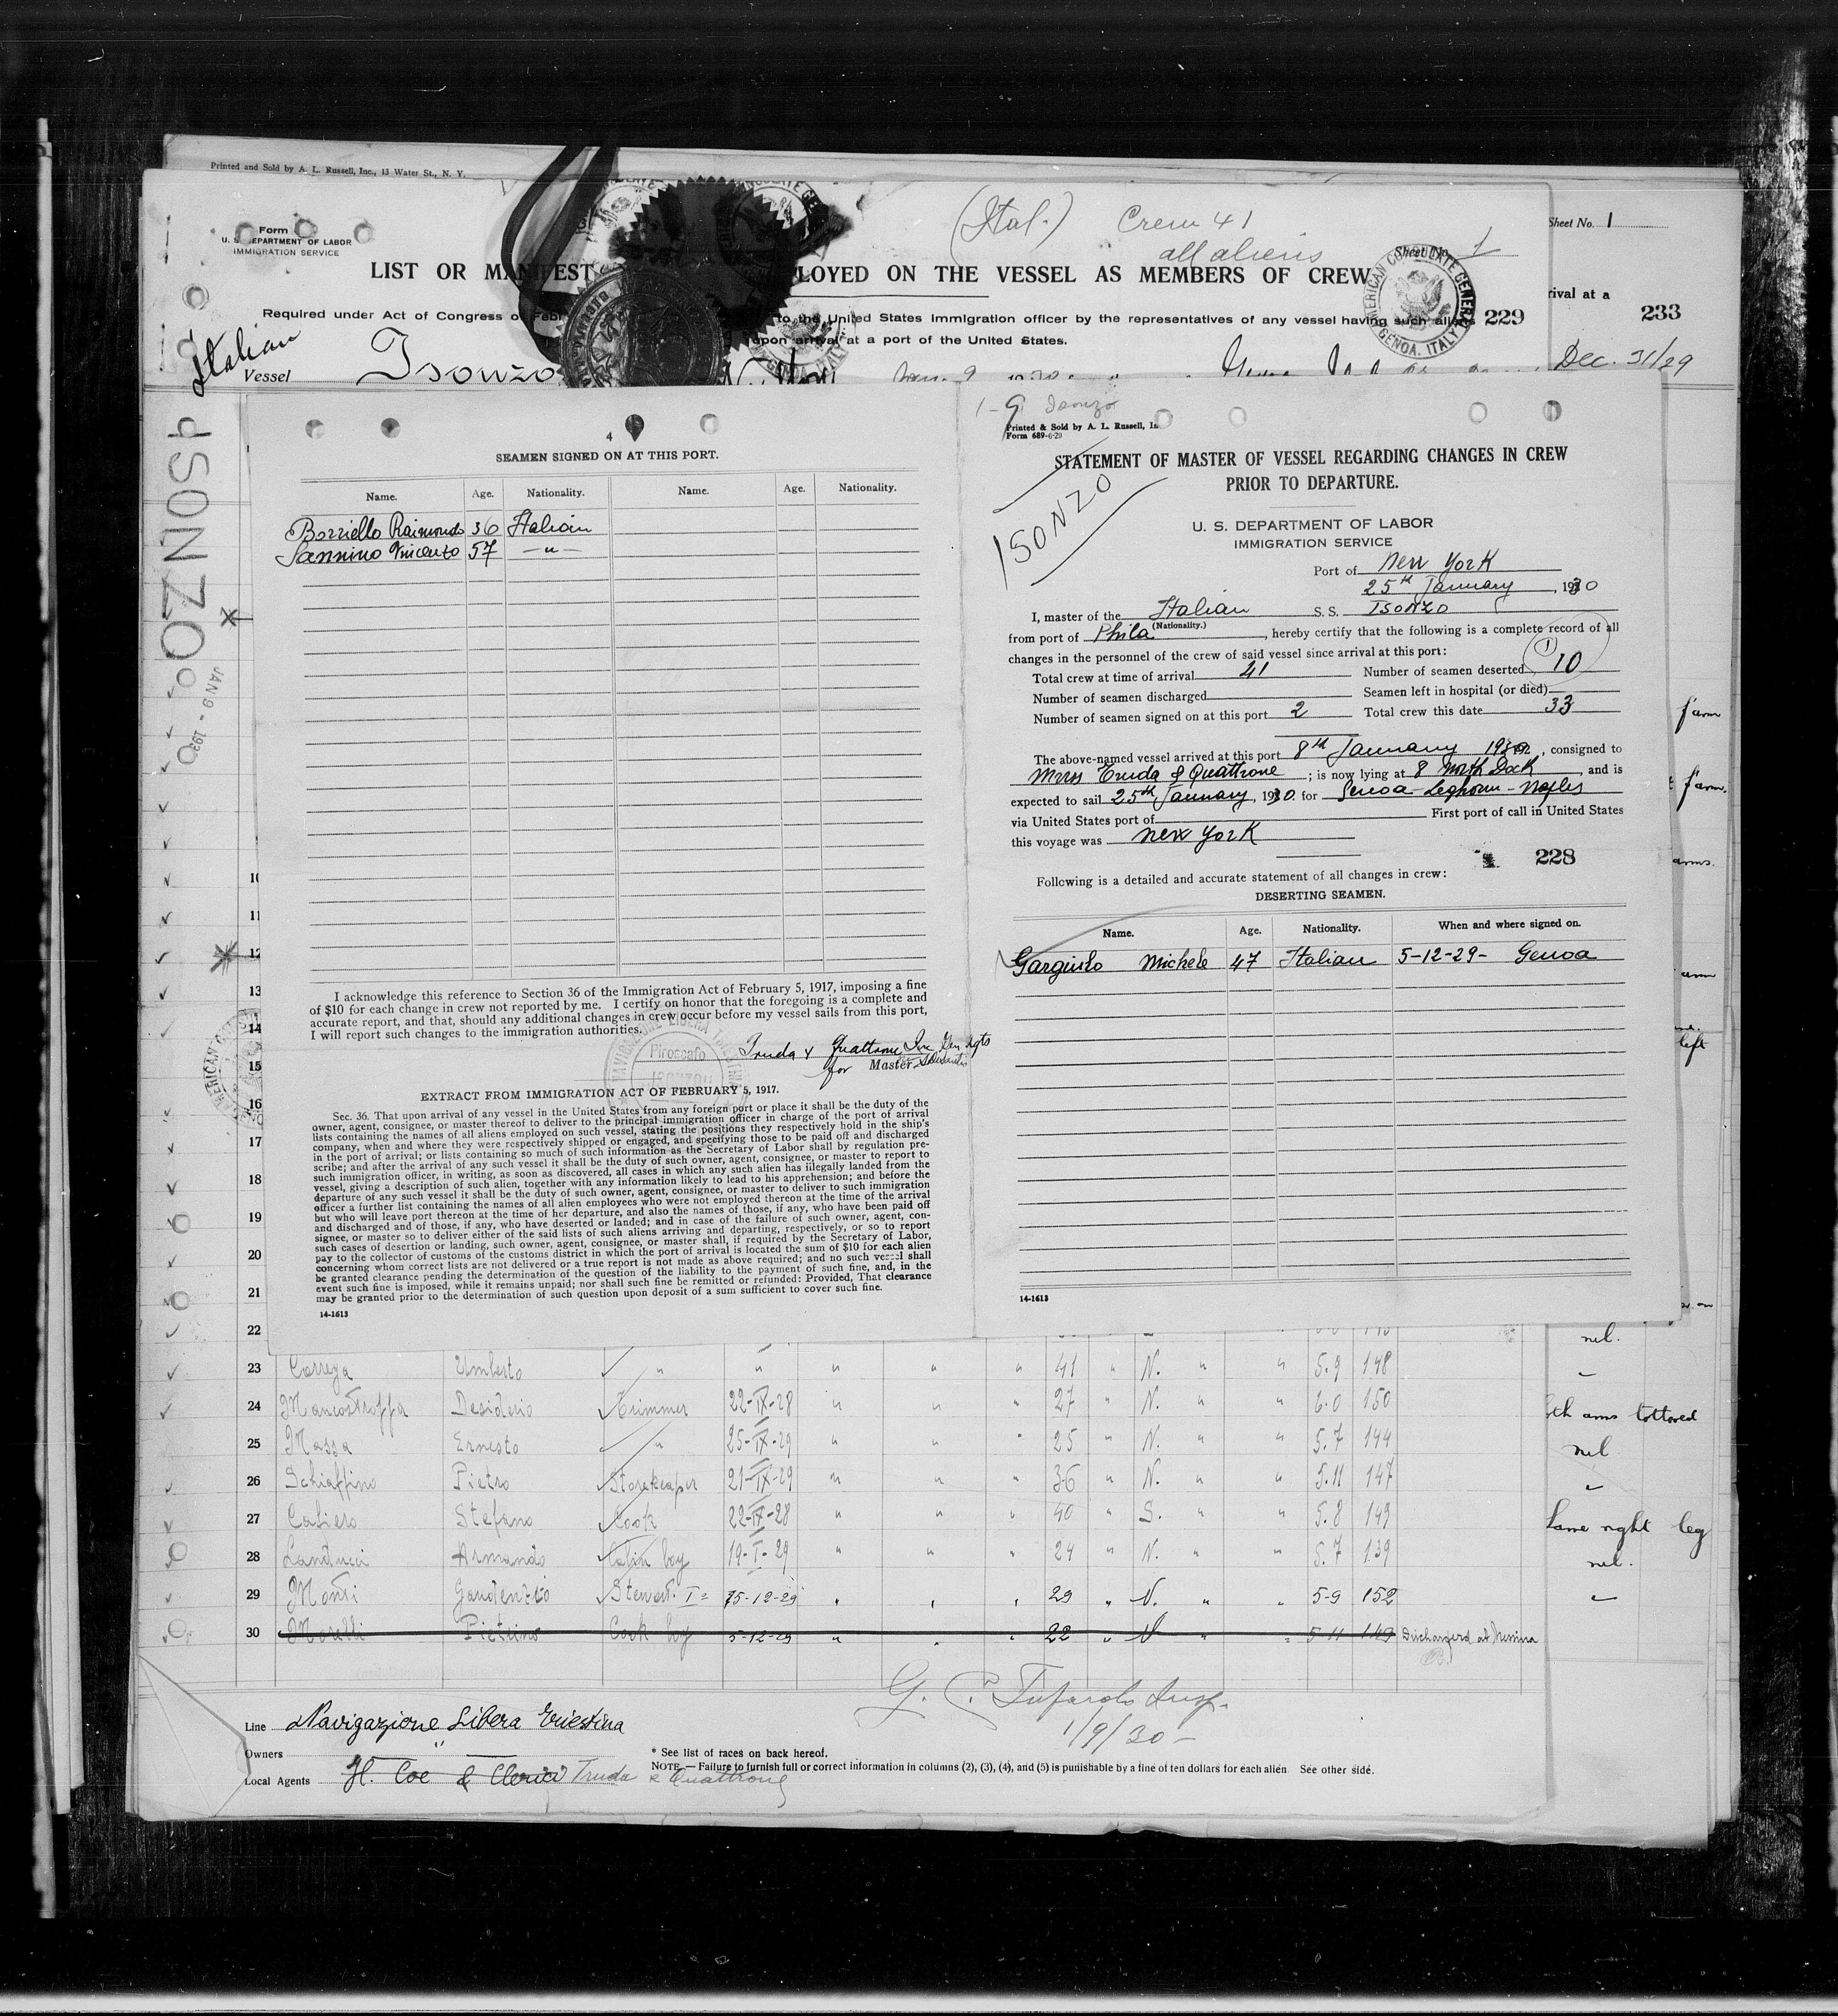 Printed and Sold by A. L. Russell, Inc., 13 Water St., N. Y.
Form
U. S. DEPARTMENT OF LABOR
IMMIGRATION SERVICE
(Ital.) Crew 41
all aliens
Sheet No. 1
Sheet No. 1
LIST OR MANIFEST
LOYED ON THE VESSEL AS MEMBERS OF CREW
rival at a
Required under Act of Congress of Feb
to the United States immigration officer by the representatives of any vessel having such aliens
229
233
upon arrival at a port of the United States.
AMERICAN CONSULATE GENERAL
GENOA, ITALY
Italian
Vessel Isonzo
Dec. 31/29
ISONZO
JAN 9 - 1930
4
SEAMEN SIGNED ON AT THIS PORT.
Name. Age. Nationality. Name. Age. Nationality.
Borriello Raimondo 36 Italian
Sannino Vincenzo 57 — " —
I acknowledge this reference to Section 36 of the Immigration Act of February 5, 1917, imposing a fine
of $10 for each change in crew not reported by me. I certify on honor that the foregoing is a complete and
accurate report, and that, should any additional changes in crew occur before my vessel sails from this port,
I will report such changes to the immigration authorities.
Piroscafo
Truda & Quattrone Inc Gen Agts
for Master
EXTRACT FROM IMMIGRATION ACT OF FEBRUARY 5, 1917.
Sec. 36. That upon arrival of any vessel in the United States from any foreign port or place it shall be the duty of the
owner, agent, consignee, or master thereof to deliver to the principal immigration officer in charge of the port of arrival
lists containing the names of all aliens employed on such vessel, stating the positions they respectively hold in the ship's
company, when and where they were respectively shipped or engaged, and specifying those to be paid off and discharged
in the port of arrival; or lists containing so much of such information as the Secretary of Labor shall by regulation pre-
scribe; and after the arrival of any such vessel it shall be the duty of such owner, agent, consignee, or master to report to
such immigration officer, in writing, as soon as discovered, all cases in which any such alien has illegally landed from the
vessel, giving a description of such alien, together with any information likely to lead to his apprehension; and before the
departure of any such vessel it shall be the duty of such owner, agent, consignee, or master to deliver to such immigration
officer a further list containing the names of all alien employees who were not employed thereon at the time of the arrival
but who will leave port thereon at the time of her departure, and also the names of those, if any, who have been paid off
and discharged and of those, if any, who have deserted or landed; and in case of the failure of such owner, agent, con-
signee, or master so to deliver either of the said lists of such aliens arriving and departing, respectively, or so to report
such cases of desertion or landing, such owner, agent, consignee, or master shall, if required by the Secretary of Labor,
pay to the collector of customs of the customs district in which the port of arrival is located the sum of $10 for each alien
concerning whom correct lists are not delivered or a true report is not made as above required; and no such vessel shall
be granted clearance pending the determination of the question of the liability to the payment of such fine, and, in the
event such fine is imposed, while it remains unpaid; nor shall such fine be remitted or refunded: Provided, That clearance
may be granted prior to the determination of such question upon deposit of a sum sufficient to cover such fine.
14-1613
1-9 Isonzo
Printed & Sold by A. L. Russell, In
Form 689-6-29
STATEMENT OF MASTER OF VESSEL REGARDING CHANGES IN CREW
PRIOR TO DEPARTURE.
ISONZO
U. S. DEPARTMENT OF LABOR
IMMIGRATION SERVICE
Port of New York
25th January, 1930
I, master of the Italian S. S. ISONZO
(Nationality.)
from port of Phila, hereby certify that the following is a complete record of all
changes in the personnel of the crew of said vessel since arrival at this port:
Total crew at time of arrival 41 Number of seamen deserted 10
Number of seamen discharged Seamen left in hospital (or died)
Number of seamen signed on at this port 2 Total crew this date 33
The above-named vessel arrived at this port 8th January 1930, consigned to
Mrss Truda & Quattrone; is now lying at 8 North Dock, and is
expected to sail 25th January, 1930 for Genoa - Leghorn - Naples
via United States port of First port of call in United States
this voyage was New York
228
Following is a detailed and accurate statement of all changes in crew:
DESERTING SEAMEN.
Name. Age. Nationality. When and where signed on.
Gargiulo Michele 47 Italian 5-12-29- Genoa
14-1613
farm
farm.
arms.
arm
left
10
11
12
13
14
15
16
17
18
19
20
21
22 nil.
23 Correga Umberto " " " " " 41 " N. " " 5.9 148
24 Mancostroffa Desiderio Trimmer 22-IX-28 " " " 27 " N. " " 6.0 150 both arms tattooed
25 Massa Ernesto " 25-IX-29 " " " 25 " N. " " 5.7 144 nil
26 Schiaffino Pietro Storekeeper 21-IX-29 " " " 36 " N. " " 5.11 147
27 Caliero Stefano Cook 22-IX-28 " " " 40 " S. " " 5.8 149 Lame right leg
28 Landucci Armando Cabin boy 19-I-29 " " " 24 " N. " " 5.7 139 nil.
29 Monti Gaudenzio Steward 5-12-29 " " " 29 " N. " " 5-9 152
30 Morelli Pietrino Cook boy 5-12-29 " " " 22 " N " " 5-11 149 Discharged at Messina
G. C. Tufarolo Insp.
1/9/30 -
Line Navigazione Libera Triestina
Owners "
Local Agents H. Coe & Clerici Truda & Quattrone
* See list of races on back hereof.
NOTE.—Failure to furnish full or correct information in columns (2), (3), (4), and (5) is punishable by a fine of ten dollars for each alien See other side.